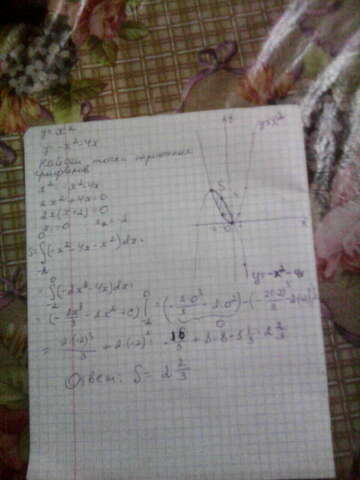 y=x²
y=-x²-4x
Найдём точки пересечения
графиков
x²=-x²-4x
2x²+4x=0
2x(x+2)=0
x=0 x=-2
S=∫(-x²-4x-x²)dx=
0
-2
=∫(-2x²-4x)dx=
=(-2x³/3-2x²+c)|=(-2·0³/3-2·0²)-(-2(-2)³/3-2(-2)²)
0
=2(-2)³/3+2(-2)²=-16/3+8=8-5 1/3=2 2/3
Ответ: S=2 2/3
y
y=x²
S
0
x
y=-x²-4x